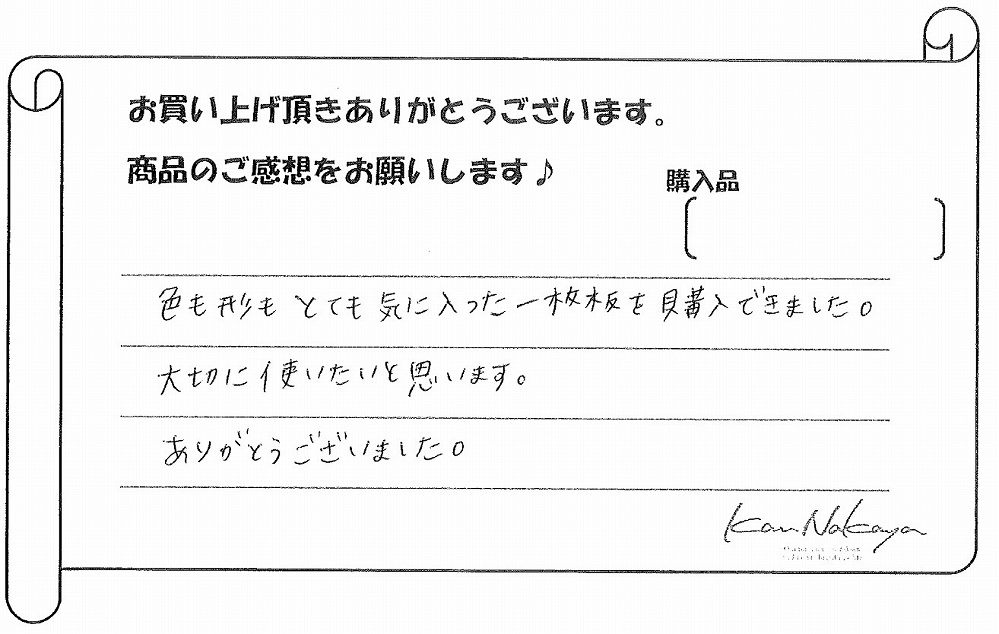 お買い上げ頂きありがとうございます。
商品のご感想をお願いします♪
購入品
色も形もとても気に入った一枚板を購入できました。
大切に使いたいと思います。
ありがとうございました。
Kan Nakaya